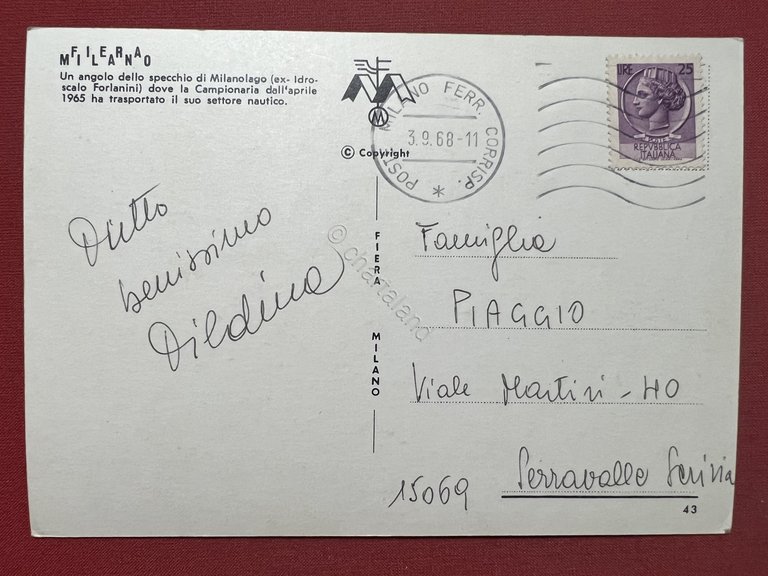 FIERA
MILANO
Un angolo dello specchio di Milanolago (ex- Idro-
scalo Forlanini) dove la Campionaria dall'aprile
1965 ha trasportato il suo settore nautico.
M
© Copyright
FIERA MILANO
POSTE MILANO FERR. CORRISP. *
3.9.68-11
LIRE 25
REPVBBLICA
ITALIANA
Tutto
benissimo
© chartaland
Famiglia
PIAGGIO
Viale Martiri - 40
15069 Serravalle Scrivia
43